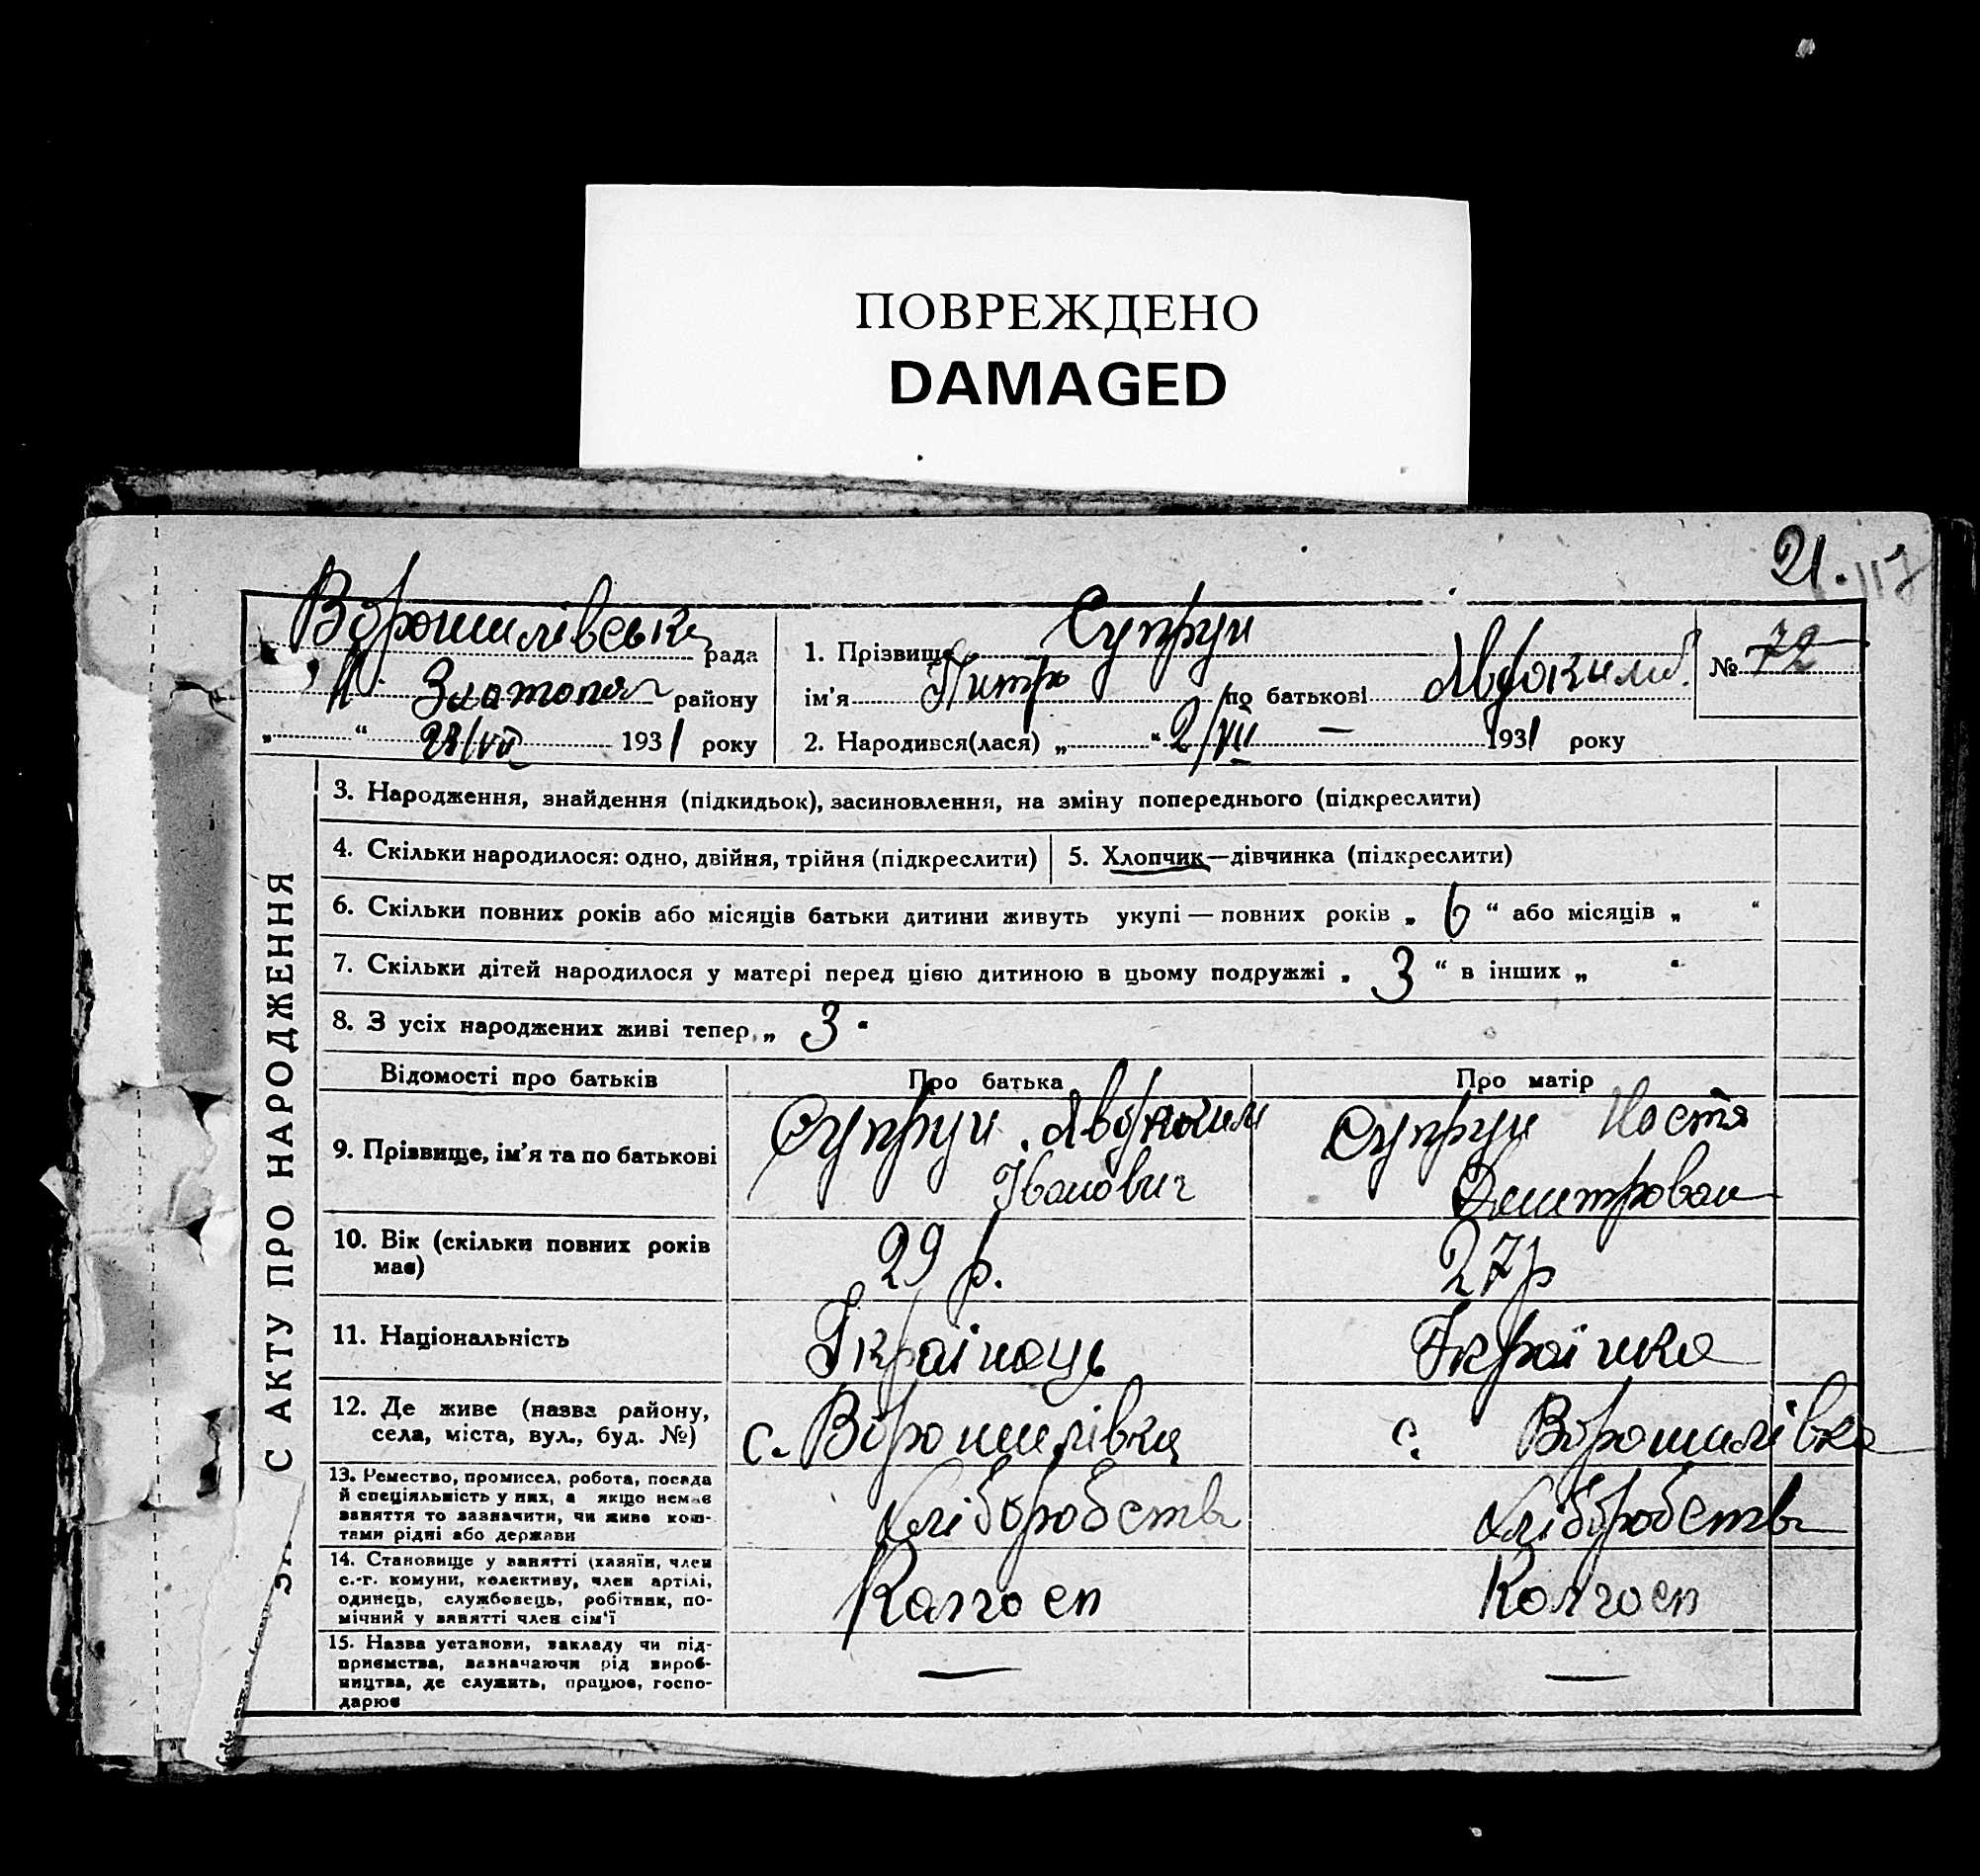 ПОВРЕЖДЕНО
DAMAGED
21. 117
Ворошилівська рада
Н. Златопол району
„ “ 23/VII 1931 року
1. Прізвище Супрун
ім’я Питро по батькові Авдокимов.
№ 72
2. Народився(лася) „ “ 2/VII — 1931 року
С АКТУ ПРО НАРОДЖЕННЯ
3. Народження, знайдення (підкидьок), засиновлення, на зміну попереднього (підкреслити)
4. Скільки народилося: одно, двійня, трійня (підкреслити)
5. Хлопчик—дівчинка (підкреслити)
6. Скільки повних років або місяців батьки дитини живуть укупі — повних років „ 6 “ або місяців „ “
7. Скільки дітей народилося у матері перед цією дитиною в цьому подружжі „ 3 “ в інших „ “
8. З усіх народжених живі тепер „ 3 “
Відомості про батьків
Про батька
Про матір
9. Прізвище, ім’я та по батькові
Супрун Авдоким
Іванович
Супрун Настя
Дмитрован
10. Вік (скільки повних років
має)
29 р.
27 р
11. Національність
Українець
Українка
12. Де живе (назва району,
села, міста, вул., буд. №)
с. Ворошилівка
с. Ворошилівка
13. Ремество, промисел, робота, посада
й спеціяльність у них, а якщо немає
заняття то зазначити, чи живе кош-
тами рідні або держави
хліборобств
хліборобств
14. Становище у занятті (хазяїн, член
с.-г. комуни, колективу, член артілі,
одинець, службовець, робітник, по-
мічний у занятті член сім’ї
Колгосп
Колгосп
15. Назва установи, закладу чи під-
приємства, зазначаючи рід вироб-
ництва, де служить, працює, госпо-
дарює
—
—